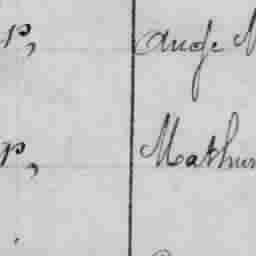 p, Ange
p, Mathur